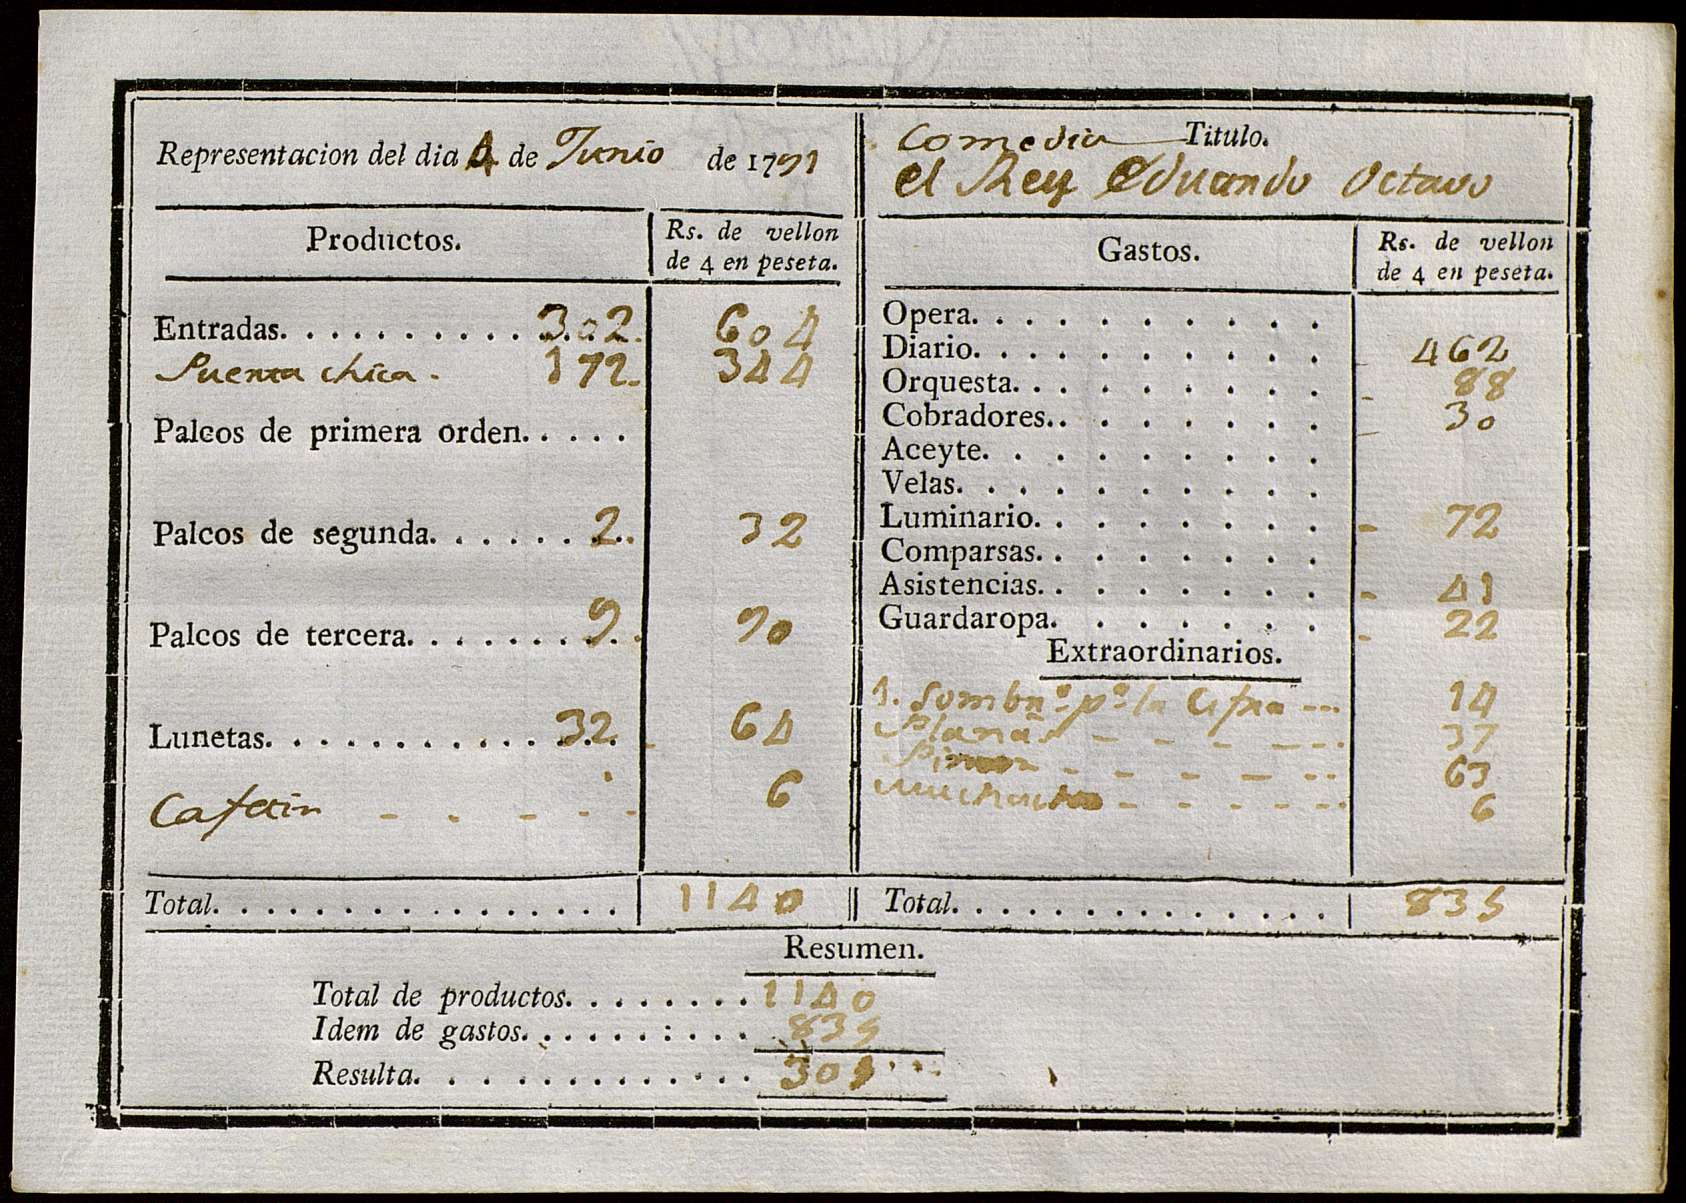 Representacion del dia 4 de Junio de 1791
Comedia Titulo.
el Rey Eduardo Octavo
Productos. Rs. de vellon de 4 en peseta.
Entradas. . . . . . . . . . 302. 604
Puerta chica. 172. 344
Palcos de primera orden. . . . .
Palcos de segunda. . . . . . 2. 32
Palcos de tercera. . . . . . 9. 90
Lunetas. . . . . . . . . . . 32. 64
Cafetin - - - - - 6
Total. . . . . . . . . . . . . . . . 1140
Gastos. Rs. de vellon de 4 en peseta.
Opera. . . . . . . . . .
Diario. . . . . . . . . . 462
Orquesta. . . . . . . . . 88
Cobradores. . . . . . . . 30
Aceyte. . . . . . . . . .
Velas. . . . . . . . . . .
Luminario. . . . . . . . 72
Comparsas. . . . . . . .
Asistencias. . . . . . . . 41
Guardaropa. . . . . . . 22
Extraordinarios.
1. Sombro. pa. la 14
37
63
6
Total. . . . . . . . . . . . . . 835
Resumen.
Total de productos. . . . . . . . 1140
Idem de gastos. . . . . . : . . . 835
Resulta. . . . . . . . . . . . . 305